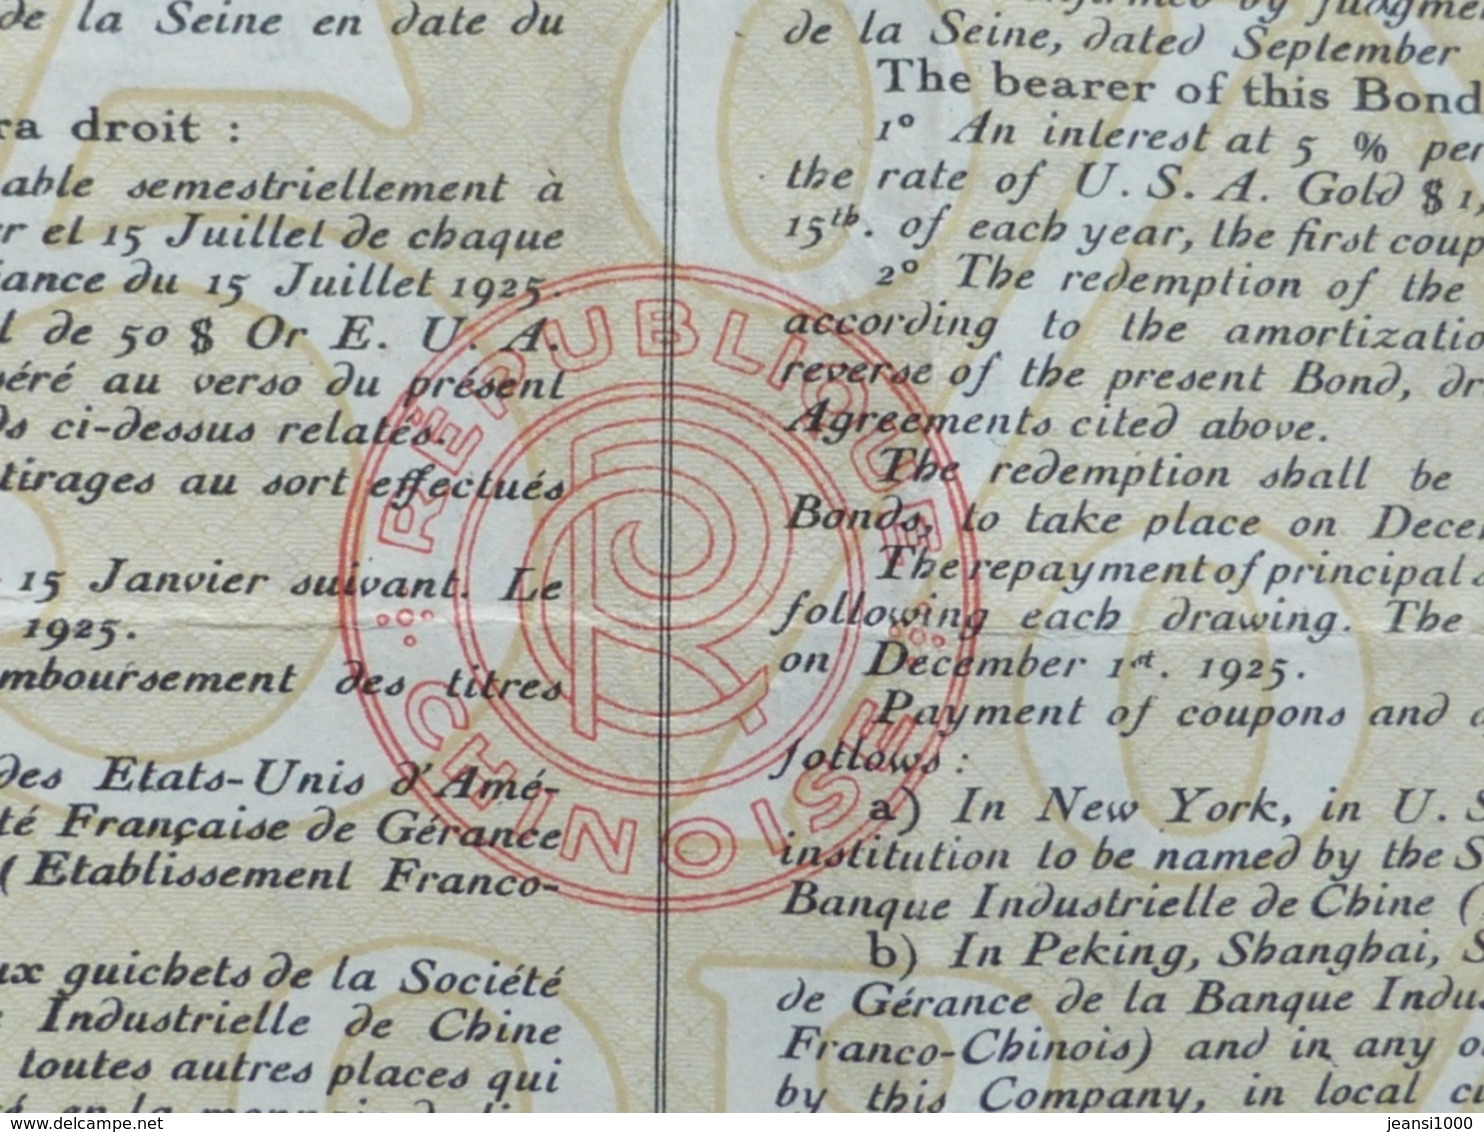 de la Seine en date du
ra droit :
able semestriellement à
er et 15 Juillet de chaque
éance du 15 Juillet 1925.
l de 50 $ Or E. U. A.
péré au verso du présent
ds ci-dessus relatés.
tirages au sort effectués
15 Janvier suivant. Le
1925.
mboursement des titres
des Etats-Unis d'Amé-
té Française de Gérance
( Etablissement Franco-
ux guichets de la Société
Industrielle de Chine
toutes autres places qui
RÉPUBLIQUE
CHINOISE
by judgmen
de la Seine, dated September
The bearer of this Bond
1° An interest at 5 % per
the rate of U. S. A. Gold $ 1,
15th. of each year, the first coup
2° The redemption of the
according to the amortizatio
reverse of the present Bond, dr
Agreements cited above.
The redemption shall be
Bonds, to take place on Decem
The repayment of principal s
following each drawing. The
on December 1st. 1925.
Payment of coupons and
follows :
a) In New York, in U. S
institution to be named by the S
Banque Industrielle de Chine (
b) In Peking, Shanghai, S
de Gérance de la Banque Indu
Franco-Chinois) and in any o
by this Company, in local c
www.delcampe.net
jeansi1000